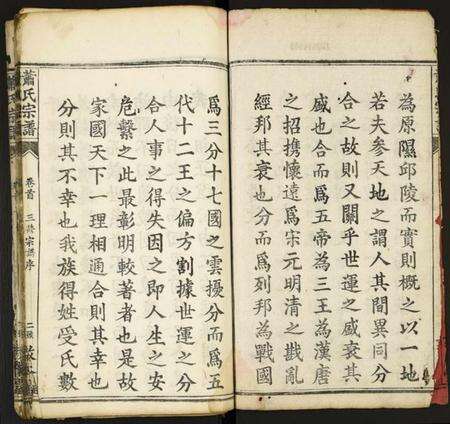 為原隰邱陵而實則概之以一地
若夫參天地之謂人其間異同分
合之故則又關乎世運之盛衰其
盛也合而為五帝為三王為漢唐
之招携懷遠為宋元明清之戡亂
經邦其衰也分而為列邦為戰國
為三分十七國之雲擾分而為五
代十二王之偏方割據世運之分
合人事之得失因之即人生之安
危繫之此最彰明較著者也是故
家國天下一理相通合則其幸也
分則其不幸也我族得姓受氏數
蕭氏宗譜
卷首
三修宗譜序